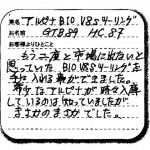 車名 アルピナ B10 V8S ツーリング
お名前 GTB89 HC.87
お客様よりひとこと
もう二度と市場に出ないと
思っていた B10 V8Sツーリングを
手に入れる事ができました。
希少なアルピナが時々入庫
しているのは知っていましたが
まさかのまさかでした。